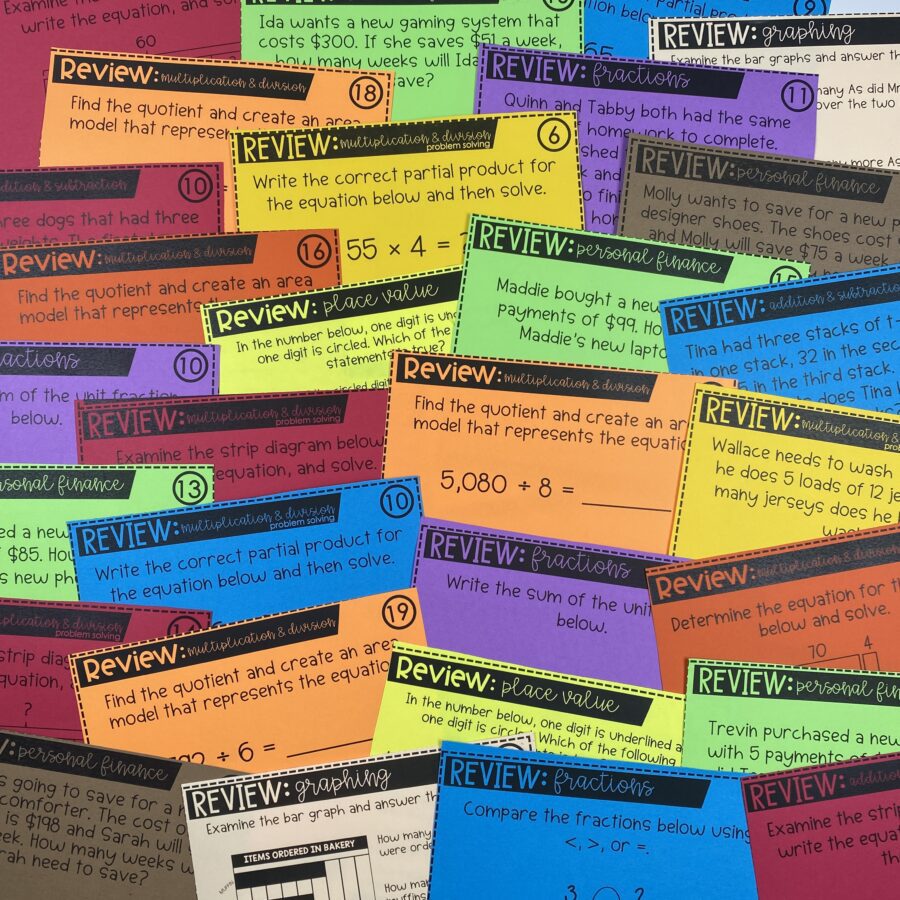 Examine the
write the equation, and so
60
Ida wants a new gaming system that
costs $300. If she saves $51 a week,
how many weeks will Ida
save?
below
9
65
REVIEW: graphing
Examine the bar graphs and answer th
many As did Mr
over the two
many more As
Review: multiplication & division
18
Find the quotient and create an area
model that represen
REVIEW: fractions
11
Quinn and Tabby both had the same
of homework to complete.
REVIEW: multiplication & division
problem solving
6
Write the correct partial product for
the equation below and then solve.
55 × 4 =
REVIEW: personal finance
Molly wants to save for a new p
designer shoes. The shoes cost
and Molly will save $75 a week
addition & subtraction
10
three dogs that had three
Review: multiplication & division
16
Find the quotient and create an area
model that represents th
REVIEW: personal finance
Maddie bought a new
payments of $99. Ho
Maddie's new lapto
Review: place value
In the number below, one digit is un
one digit is circled. Which of the
statements true?
REVIEW: addition & subtraction
Tina had three stacks of t-
in one stack, 32 in the sec
5 in the third stack.
does Tina
fractions
10
m of the unit fraction
below.
REVIEW: multiplication & division
problem solving
Examine the strip diagram below
equation, and solve.
Review: multiplication & division
Find the quotient and create an ar
model that represents the equatio
5,080 ÷ 8 =
REVIEW: multiplication &
Wallace needs to wash
he does 5 loads of 12 je
many jerseys does he
personal finance
13
ed a new
$85. How
s new ph
REVIEW: multiplication & division
problem solving
10
Write the correct partial product for
the equation below and then solve.
REVIEW: fractions
Write the sum of the unit
below.
Review: multiplication & division
Determine the equation for th
below and solve.
70 4
problem solving
strip dia
equation,
?
Review: multiplication & division
19
Find the quotient and create an area
model that represents the equatio
÷ 6 =
Review: place value
In the number below, one digit is underlined a
one digit is circle Which of the following
REVIEW: personal fin
Trevin purchased a new
with 5 payments of
personal finance
s going to save for a
comforter. The cost o
is $198 and Sarah will
eek. How many weeks w
rah need to save?
REVIEW: graphing
Examine the bar graph and answer th
ITEMS ORDERED IN BAKERY
How many
were orde
How ma
muffins
REVIEW: fractions
Compare the fractions below using
<, >, or =.
REVIEW: addition
Examine the strip
write the equat
th